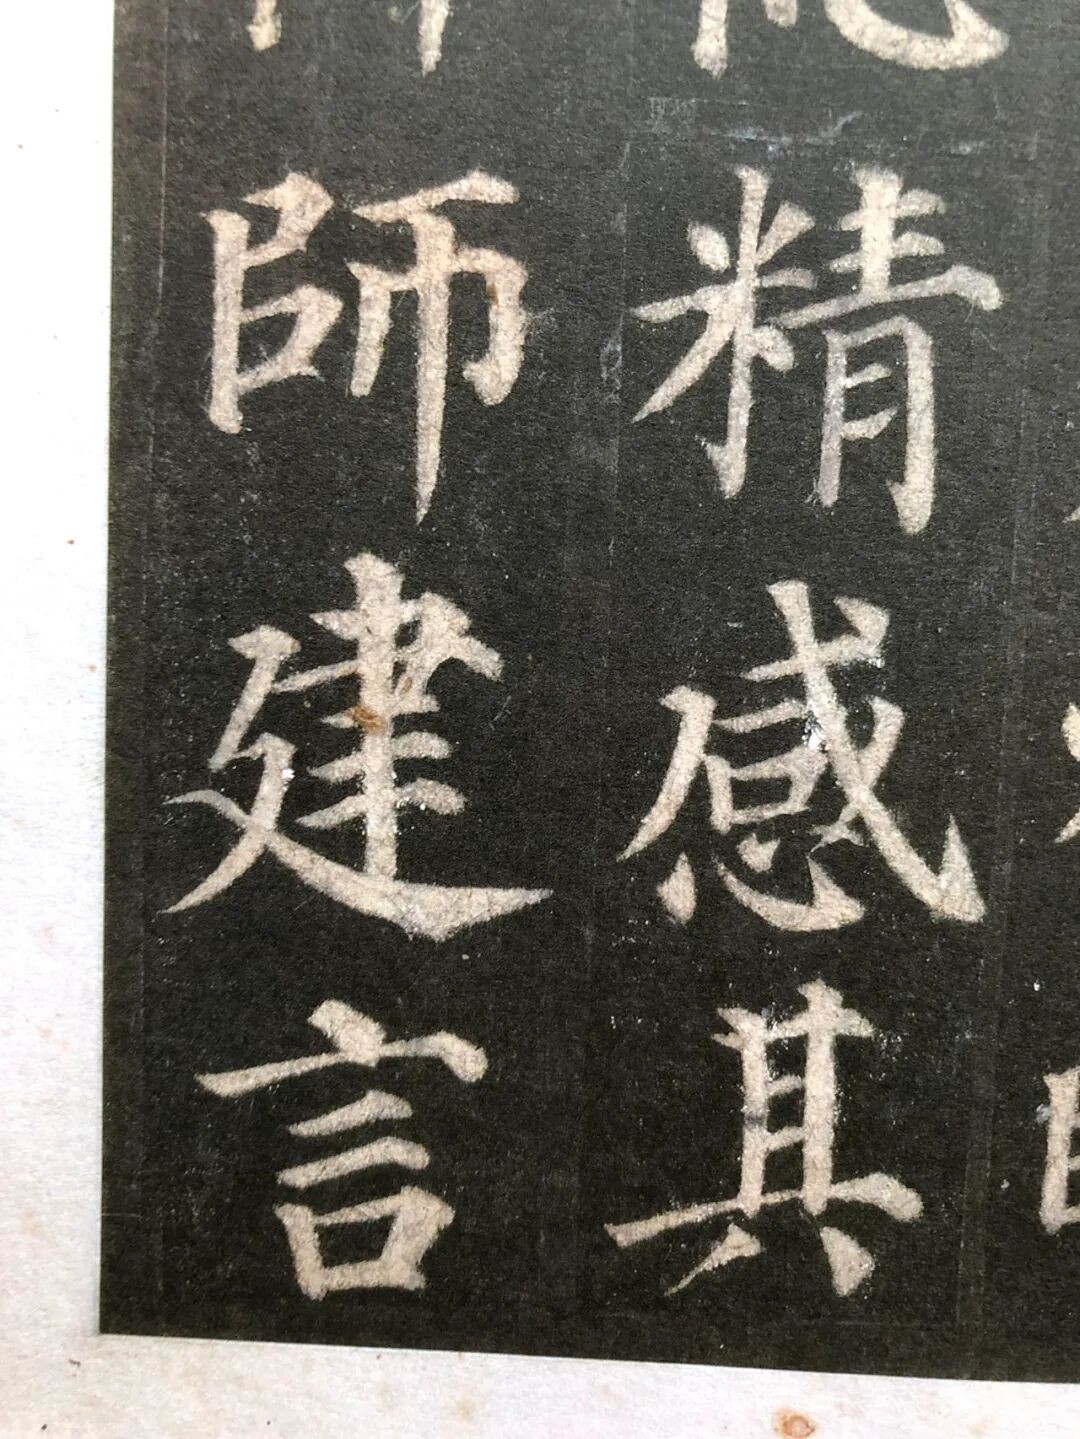 精感其
師建言